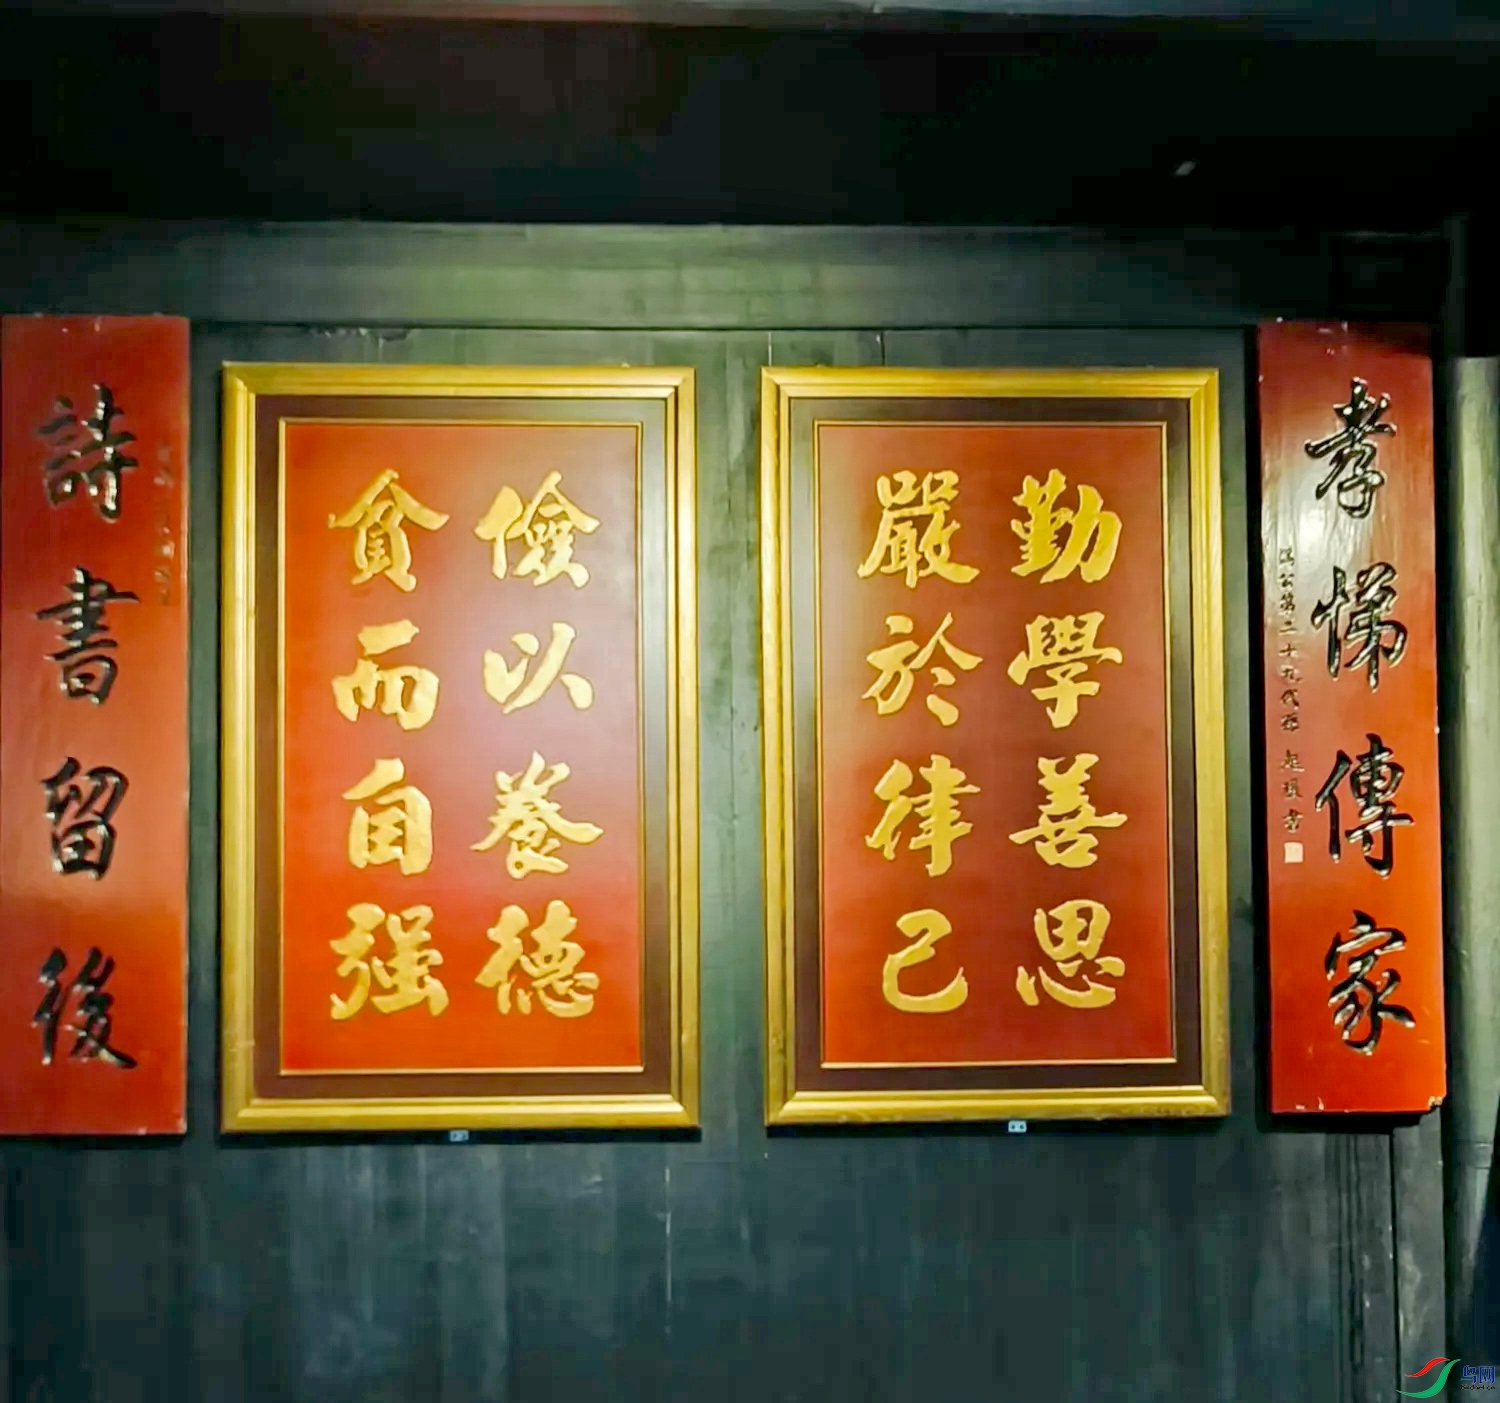 孝悌傳家
公第二十九代孫 起 書
勤學善思
嚴於律己
儉以養德
貧而自强
詩書留後
鸟网